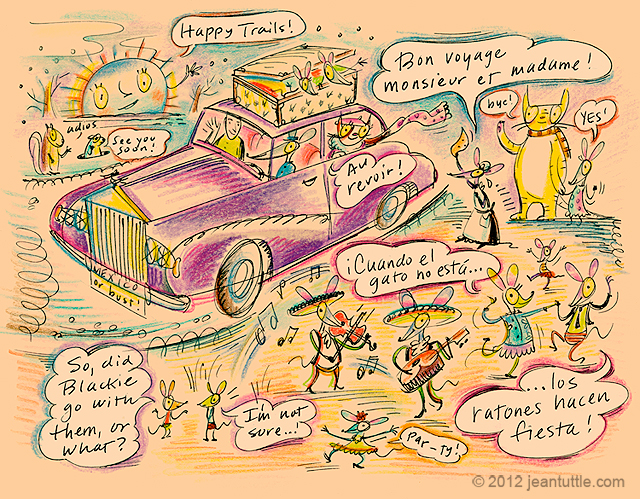 Happy Trails!
Bon voyage
monsieur et madame!
bye!
YES!
adios
See you
soon!
Au
revoir!
MEXICO
or bust!
¡Cuando el
gato no está...
...los
ratones hacen
fiesta!
So, did
Blackie
go with
them, or
what?
I'm not
sure..!
PAR-TY!
© 2012 jeantuttle.com